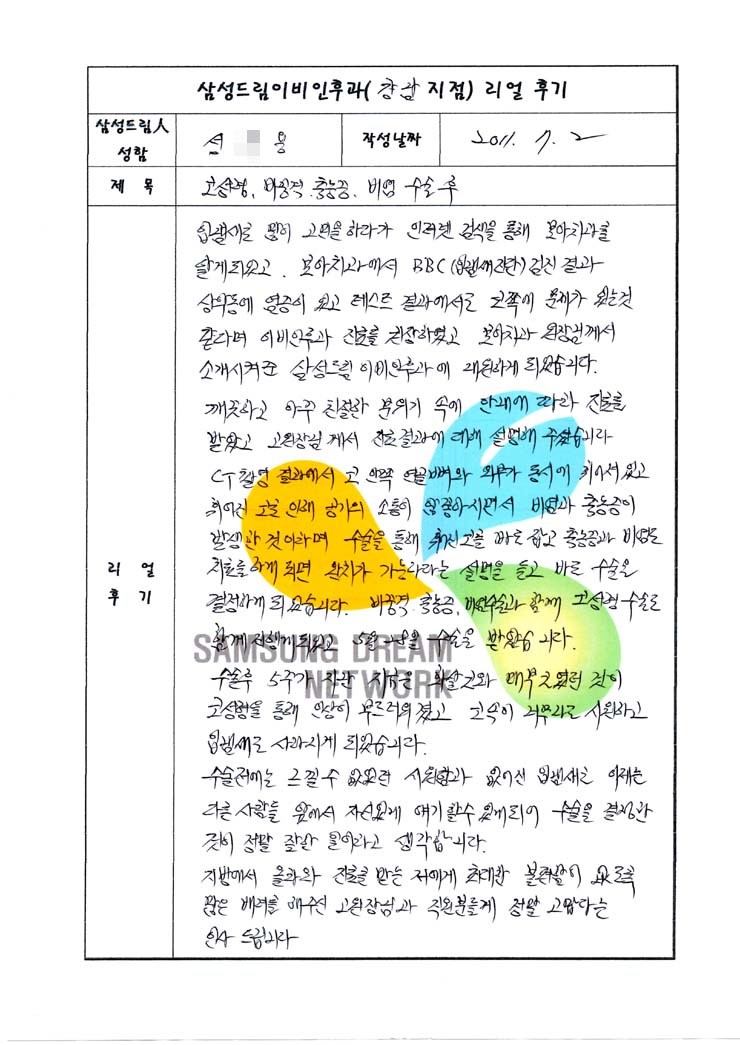 삼성드림이비인후과(강남 지점) 리얼 후기
삼성드림人 성함
석 용
작성날짜
2011. 7. 2
제 목
코성형, 비중격. 축농증. 비염 수술 후
리 얼 후 기
입냄새로 많이 고민을 하다가 인터넷 검색을 통해 보아치과를
알게되었고. 보아치과에서 BBC(입냄새진단)검진 결과
상악동에 염증이 있고 테스트 결과에서도 코쪽에 문제가 있는것
같다며 이비인후과 진료를 권장하였고 보아치과 원장님께서
소개시켜준 삼성드림 이비인후과에 내원하게 되었습니다.
깨끗하고 아주 친절한 분위기 속에 안내에 따라 진료를
받았고 고원장님 께서 진료결과에 대해 설명해 주셨습니다
CT촬영 결과에서 코 안쪽 연골뼈와 외부가 동시에 휘어져있고
휘어진 코로 인해 공기의 소통이 안좋아지면서 비염과 축농증이
발생한 것이라며 수술을 통해 휘어진코를 바로 잡고 축농증과 비염도
치료를하게 되면 완치가 가능하다라는 설명을 듣고 바로 수술을
결정하게 되었습니다. 비중격. 축농증, 비염수술과 함께 코성형 수술도
함께 진행하게되었고 5월 수술을 받았습니다.
SAMSUNG DREAM
NETWORK
수술후 5주가 지난 지금은 화살코와 매부리코였던 것이
코성형을 통해 인상이 부드러워졌고 코속이 너무나도 시원하고
입냄새도 사라지게 되었습니다.
수술전에는 느낄 수 없었던 시원함과 없어진 입냄새로 이제는
다른 사람들 앞에서 자신있게 얘기할수 있게되어 수술을 결정한
것이 정말 잘한 일이라고 생각합니다.
지방에서 올라와 진료를 받는 저에게 최대한 불편함이 없도록
많은 배려를 해주신 고원장님과 직원분들께 정말 고맙다는
인사 드립니다